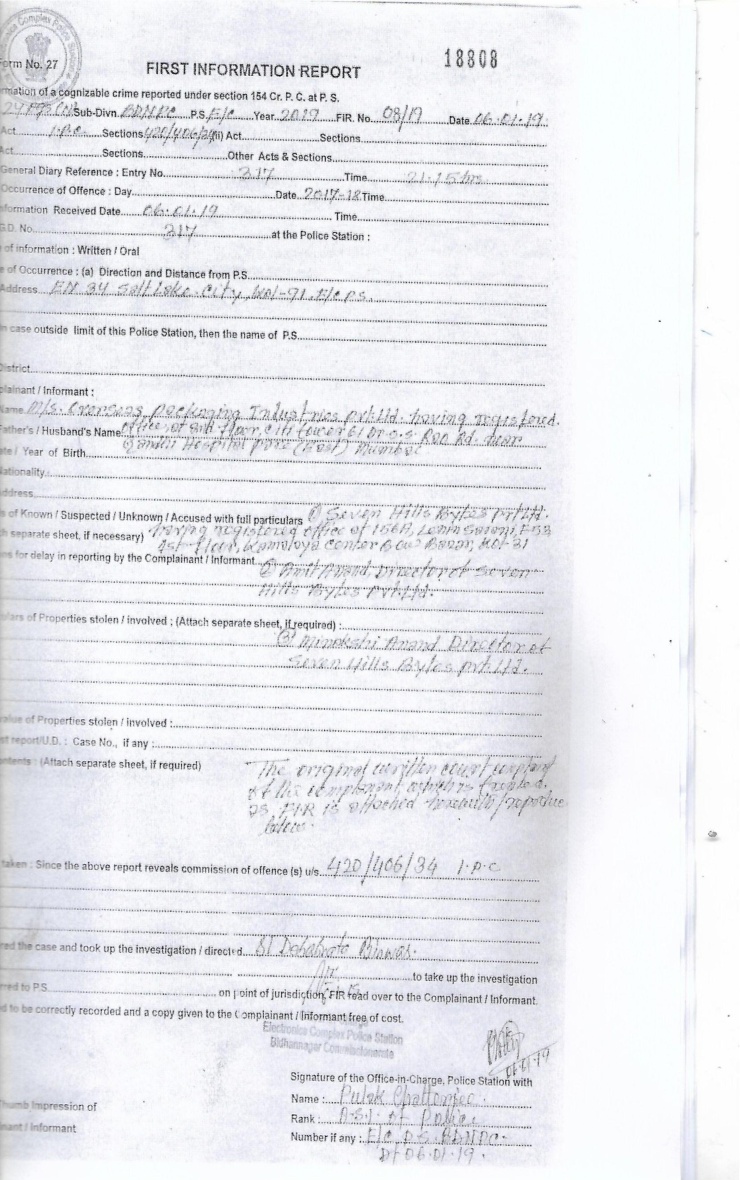 18808
orm No. 27
FIRST INFORMATION REPORT
rmation of a cognizable crime reported under section 154 Cr. P. C. at P. S.
Sub-Divn. BDNPC P.S. E/C Year 2019 FIR. No. 08/19 Date 06.01.19
Act I.P.C. Sections 420/406/34 (ii) Act Sections
Act Sections Other Acts & Sections
General Diary Reference : Entry No. 317 Time 21.15 hrs
Occurrence of Offence : Day Date 2017-18 Time
formation Received Date 06.01.19 Time
G.D. No. 317 at the Police Station :
of information : Written / Oral
e of Occurrence : (a) Direction and Distance from P.S.
Address EN 34 Salt Lake City, Kol-91, E/C P.S.
n case outside limit of this Police Station, then the name of P.S.
District
plainant / Informant :
Name M/s. Overseas Packaging Industries Pvt. Ltd. having registered
ather's / Husband's Name office at Floor, Citi tower 61 Dr. S.S. Rao Rd. near
te / Year of Birth Gandhi Hospital Parel (East) Mumbai
ationality
ddress
s of Known / Suspected / Unknown / Accused with full particulars ① Seven Hills Bytes Pvt. Ltd.
h separate sheet, if necessary) having registered office at 156A, Lenin Sarani, F53
1st Floor, Kamalaya Center Bow Bazar, Kol-31
es for delay in reporting by the Complainant / Informant ② Amit Anand Director of Seven
Hills Bytes Pvt. Ltd.
lars of Properties stolen / involved : (Attach separate sheet, if required) :
③ Minakshi Anand Director of
Seven Hills Bytes Pvt. Ltd.
alue of Properties stolen / involved :
st report/U.D. : Case No., if any :
ntents : (Attach separate sheet, if required) The original written court complaint
of the complainant which is treated
as FIR is attached herewith /
below.
taken : Since the above report reveals commission of offence (s) u/s. 420/406/34 I.P.C
red the case and took up the investigation / directed SI Debabrata Biswas
to take up the investigation
rred to P.S. on point of jurisdiction, FIR read over to the Complainant / Informant.
d to be correctly recorded and a copy given to the Complainant / Informant free of cost.
Electronics Complex Police Station
Bidhannagar Commissionerate
06.01.19
Signature of the Office-in-Charge, Police Station with
Name : Pulak Chatterjee
Rank : A.S.I. of Police
Number if any : E/C P.S. BDNPC.
Dt 06.01.19.
Thumb Impression of
inant / Informant